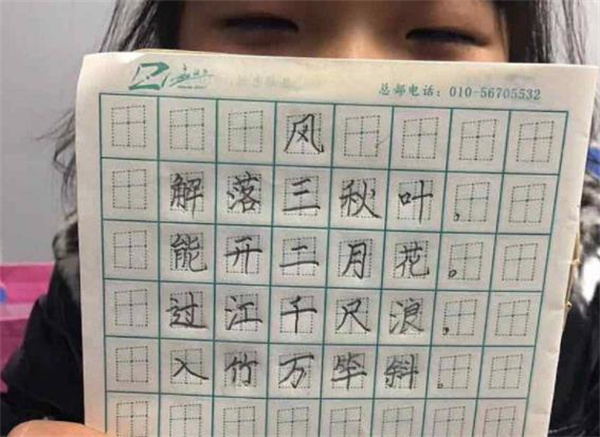 总部电话：010-56705532
风
解落三秋叶，
能开二月花。
过江千尺浪，
入竹万竿斜。